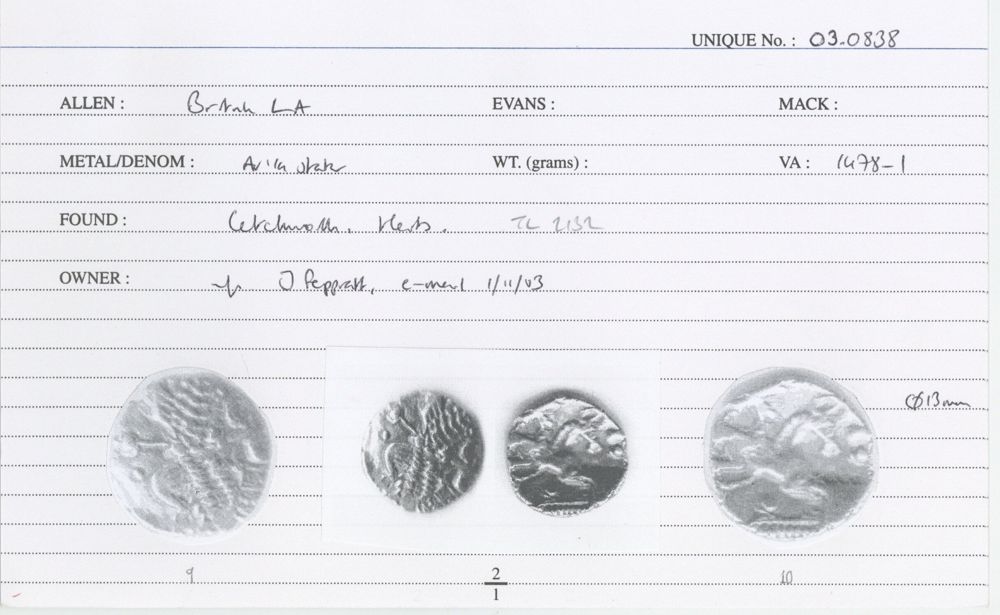 UNIQUE No. : 03.0838
ALLEN : British LA EVANS : MACK :
METAL/DENOM : AV 1/4 stater WT. (grams) : VA : 1478-1
FOUND : Letchworth, Herts. TL 2132
OWNER : J Peppratt, e-mail 1/11/03
Ø 13mm
9 2/1 10